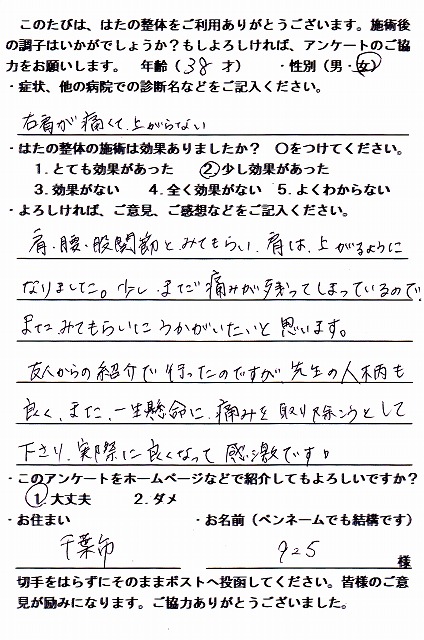 このたびは、はたの整体をご利用ありがとうございます。施術後
の調子はいかがでしょうか？もしよろしければ、アンケートのご協
力をお願いします。 年齢（38 才） ・性別（男・女）
・症状、他の病院での診断名などをご記入ください。
右肩が痛くて上がらない
・はたの整体の施術は効果ありましたか？ 〇をつけてください。
1．とても効果があった ②少し効果があった
3．効果がない 4．全く効果がない 5．よくわからない
・よろしければ、ご意見、ご感想などをご記入ください。
肩・腰・股関節と、みてもらい、肩は、上がるように
なりました。少し、まだ痛みが残ってしまっているので、
またみてもらいにうかがいたいと思います。
友人からの紹介で行ったのですが、先生の人柄も
良く、また、一生懸命に、痛みを取り除こうとして
下さり、実際に良くなって感激です。
・このアンケートをホームページなどで紹介してもよろしいですか？
①大丈夫 2．ダメ
・お住まい ・お名前（ペンネームでも結構です）
千葉市 925 様
切手をはらずにそのままポストへ投函してください。皆様のご意
見が励みになります。ご協力ありがとうございました。